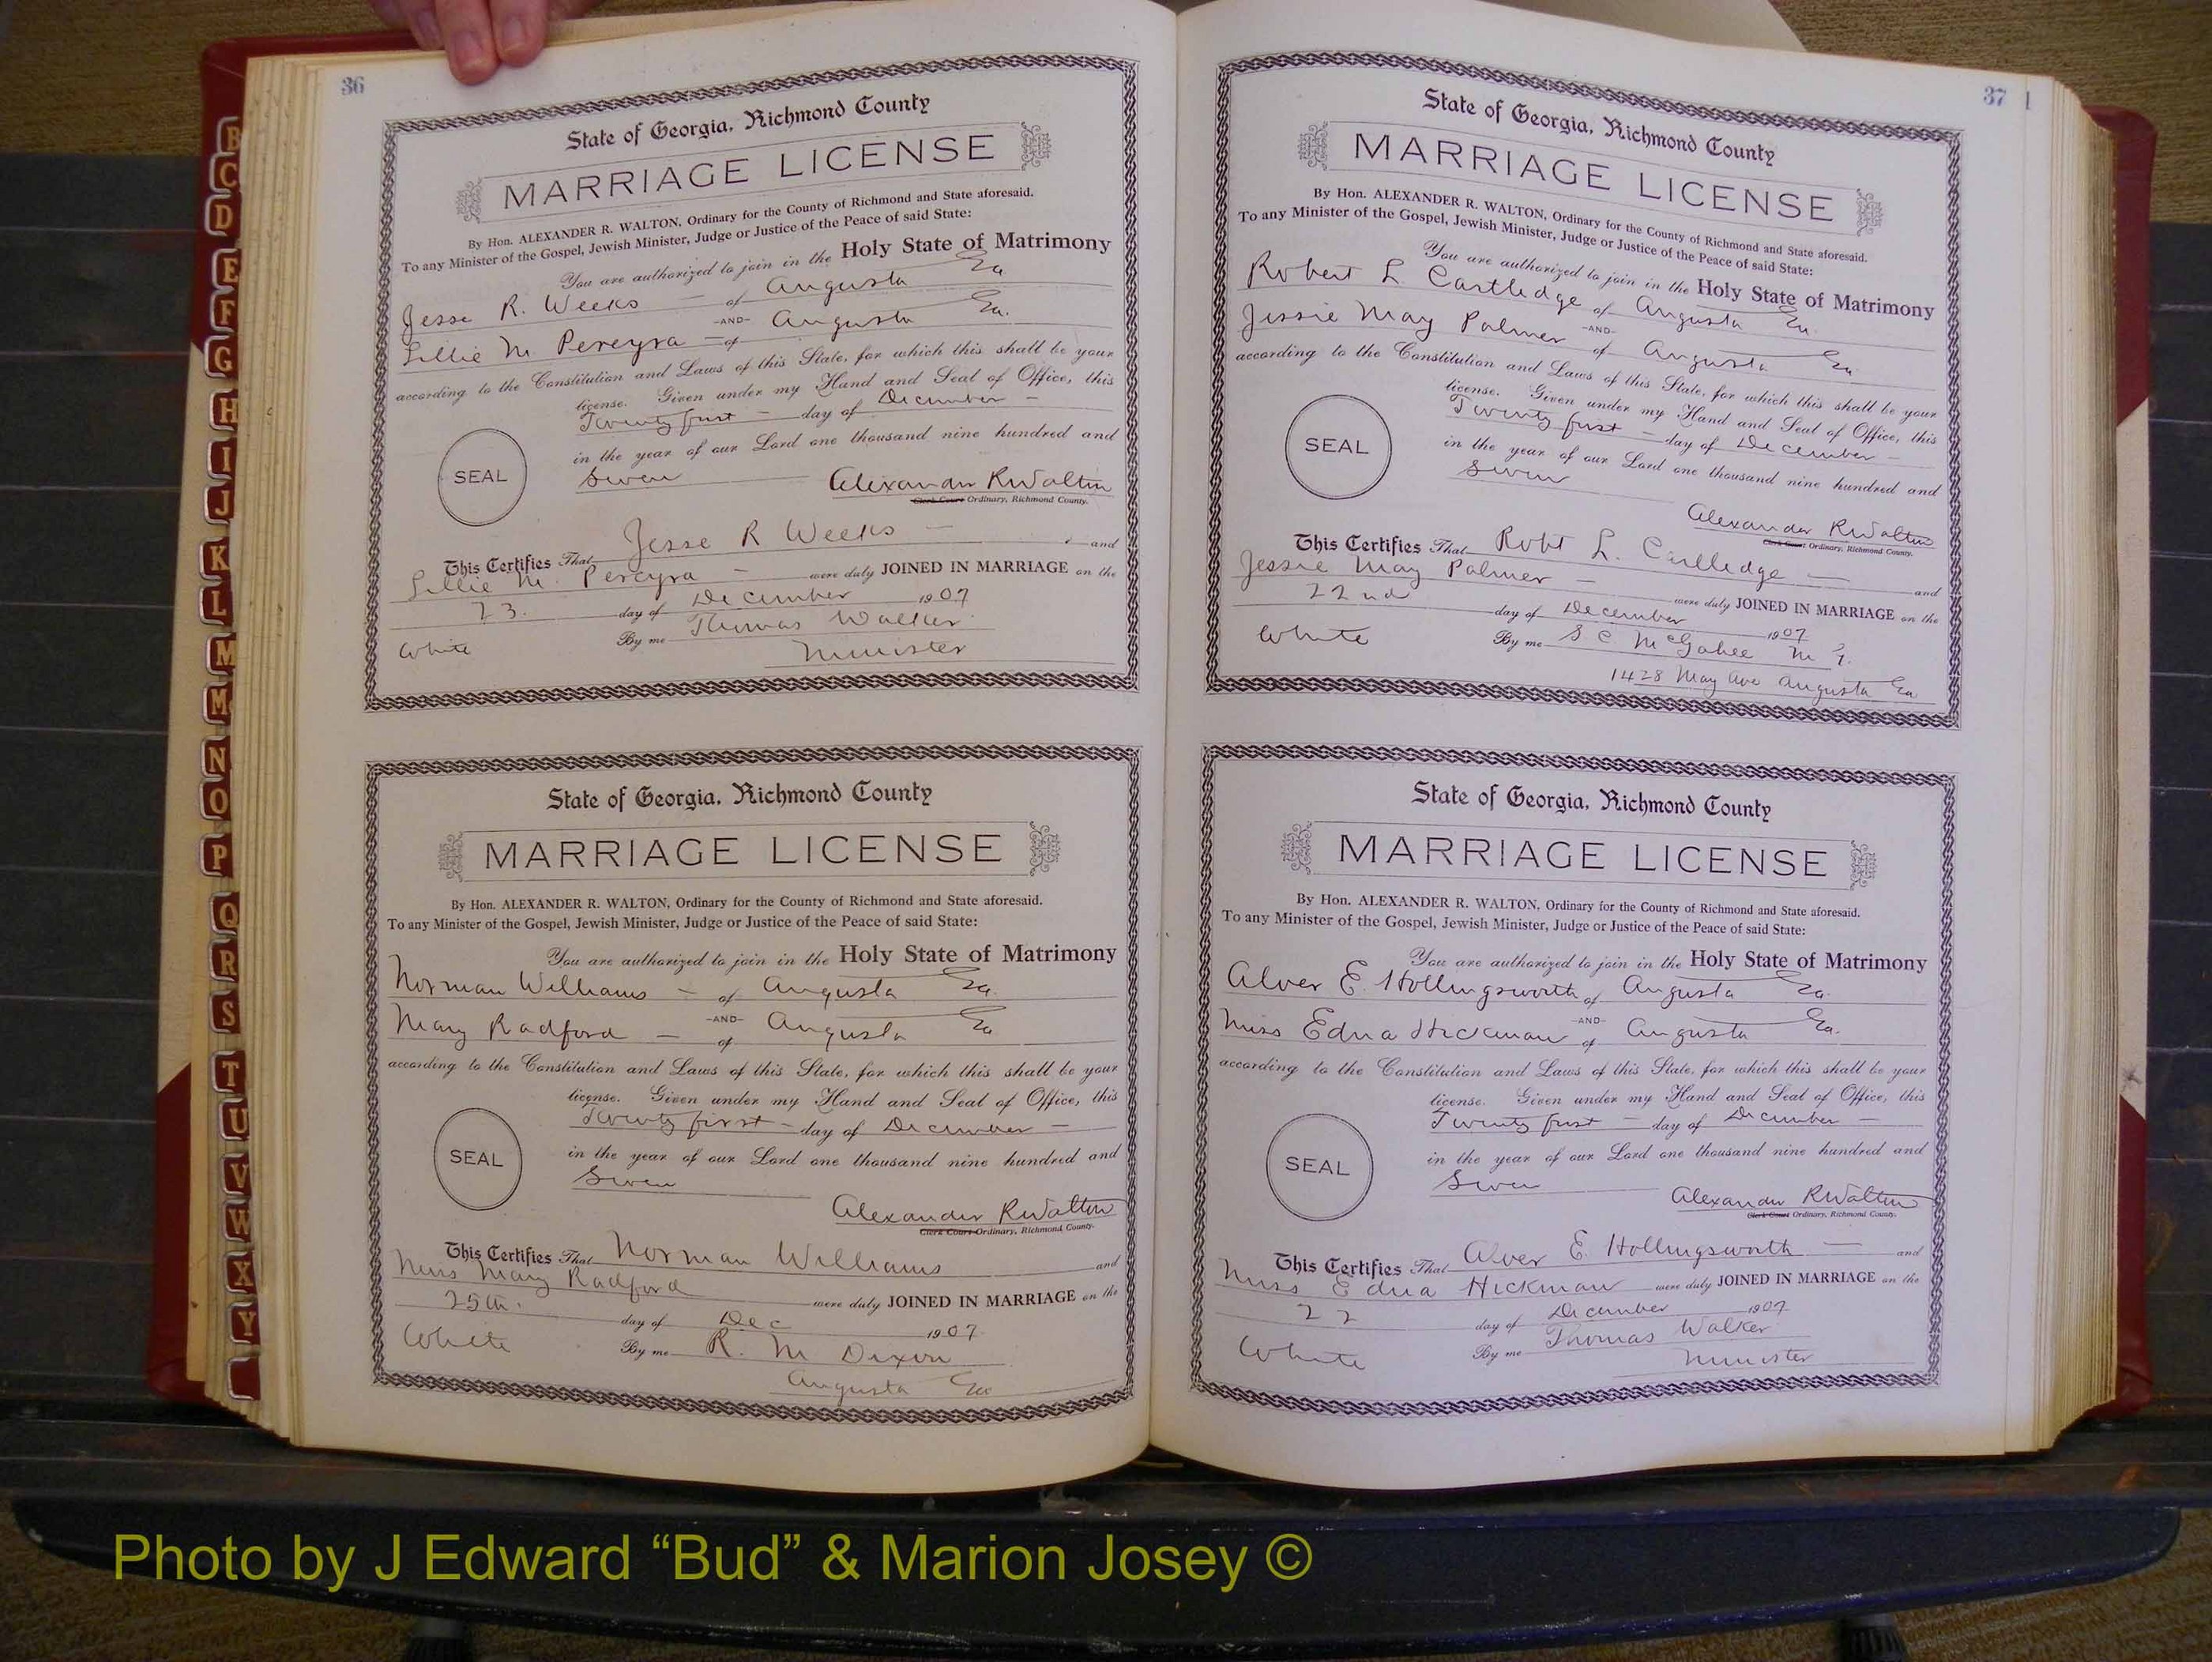 36
State of Georgia, Richmond County
MARRIAGE LICENSE
By Hon. ALEXANDER R. WALTON, Ordinary for the County of Richmond and State aforesaid.
To any Minister of the Gospel, Jewish Minister, Judge or Justice of the Peace of said State:
You are authorized to join in the Holy State of Matrimony
Jesse R. Weeks — of Augusta Ga
—AND—
Lillie M. Pereyra — of Augusta Ga.
according to the Constitution and Laws of this State, for which this shall be your
license. Given under my Hand and Seal of Office, this
Twenty first — day of December —
in the year of our Lord one thousand nine hundred and
SEAL
Seven
Alexander R Walton
Clerk Court Ordinary, Richmond County.
This Certifies That Jesse R Weeks — and
Lillie M. Pereyra — were duly JOINED IN MARRIAGE on the
23. day of December 1907
White By me Thomas Walker
Minister
State of Georgia, Richmond County
MARRIAGE LICENSE
By Hon. ALEXANDER R. WALTON, Ordinary for the County of Richmond and State aforesaid.
To any Minister of the Gospel, Jewish Minister, Judge or Justice of the Peace of said State:
You are authorized to join in the Holy State of Matrimony
Norman Williams — of Augusta Ga.
—AND—
Mary Radford — of Augusta Ga
according to the Constitution and Laws of this State, for which this shall be your
license. Given under my Hand and Seal of Office, this
Twenty first — day of December —
in the year of our Lord one thousand nine hundred and
SEAL
Seven
Alexander R Walton
Clerk Court Ordinary, Richmond County.
This Certifies That Norman Williams and
Miss Mary Radford were duly JOINED IN MARRIAGE on the
25th. day of Dec 1907
White By me R. M Dixon
Augusta Ga
37 1
State of Georgia, Richmond County
MARRIAGE LICENSE
By Hon. ALEXANDER R. WALTON, Ordinary for the County of Richmond and State aforesaid.
To any Minister of the Gospel, Jewish Minister, Judge or Justice of the Peace of said State:
You are authorized to join in the Holy State of Matrimony
Robert L. Cartledge of Augusta Ga.
—AND—
Jessie May Palmer of Augusta Ga
according to the Constitution and Laws of this State, for which this shall be your
license. Given under my Hand and Seal of Office, this
Twenty first — day of December —
in the year of our Lord one thousand nine hundred and
SEAL
Seven
Alexander R Walton
Clerk Court Ordinary, Richmond County.
This Certifies That Robt L. Cartledge — and
Jessie May Palmer — were duly JOINED IN MARRIAGE on the
22nd day of December 1907
White By me S C McGahee M G.
1428 May Ave Augusta Ga
State of Georgia, Richmond County
MARRIAGE LICENSE
By Hon. ALEXANDER R. WALTON, Ordinary for the County of Richmond and State aforesaid.
To any Minister of the Gospel, Jewish Minister, Judge or Justice of the Peace of said State:
You are authorized to join in the Holy State of Matrimony
Alver E. Hollingsworth of Augusta Ga.
—AND—
Miss Edna Hickman of Augusta Ga.
according to the Constitution and Laws of this State, for which this shall be your
license. Given under my Hand and Seal of Office, this
Twenty first — day of December —
in the year of our Lord one thousand nine hundred and
SEAL
Seven
Alexander R Walton
Clerk Court Ordinary, Richmond County.
This Certifies That Alver E. Hollingsworth — and
Miss Edna Hickman were duly JOINED IN MARRIAGE on the
22 day of December 1907
White By me Thomas Walker
Minister
B
C
D
E
F
G
H
I
J
K
L
M
M
N
O
P
Q
R
S
T
U
V
W
X
Y
Photo by J Edward “Bud” & Marion Josey ©